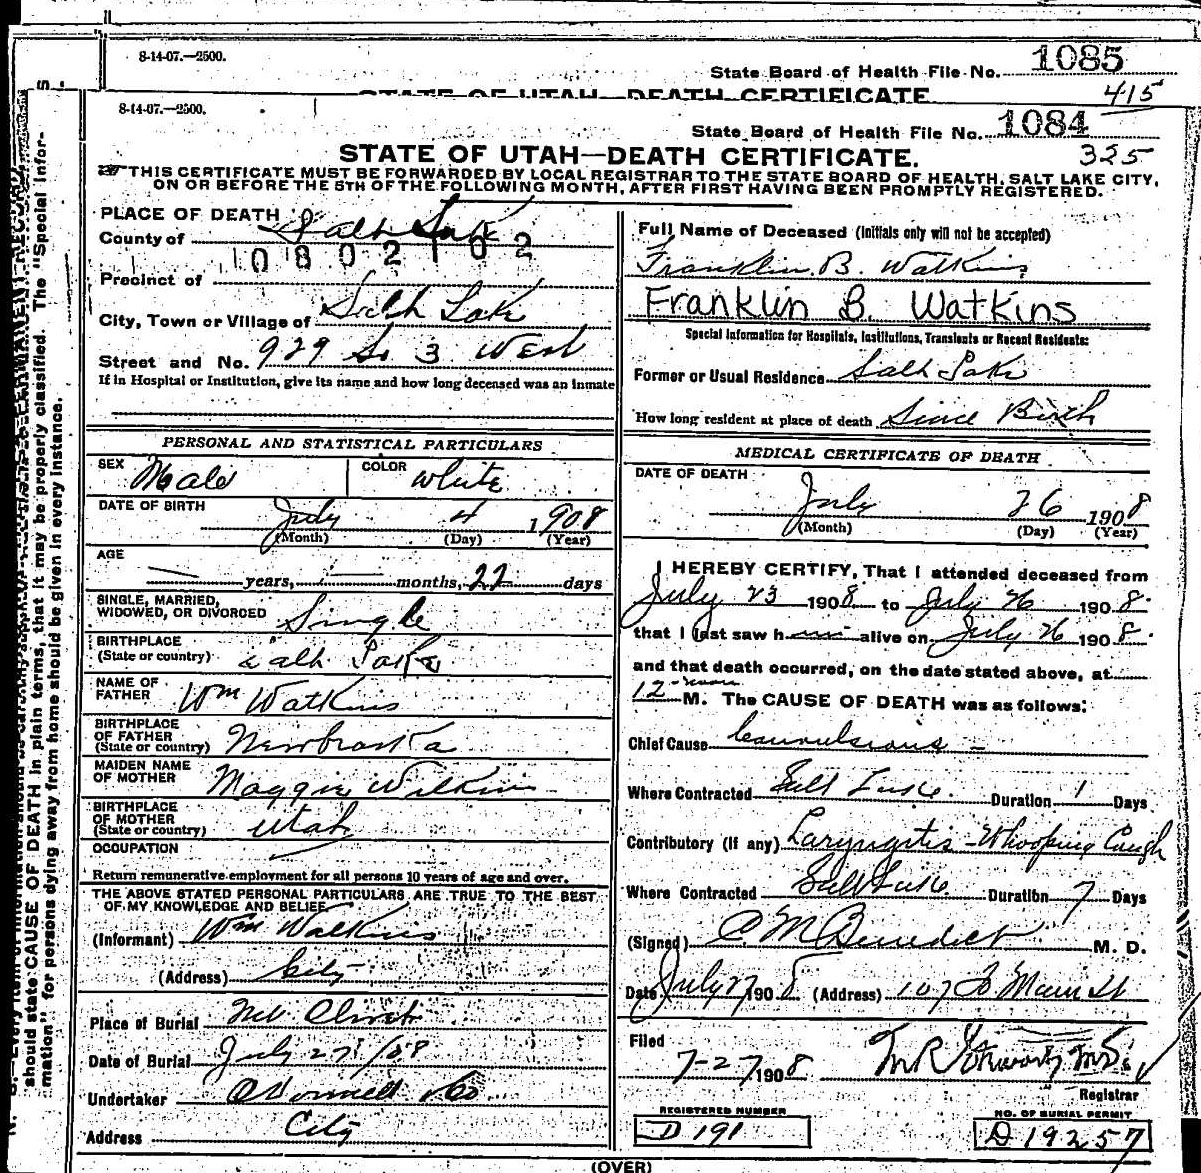 8-14-07.—2500.
State Board of Health File No. 1085
STATE OF UTAH—DEATH CERTIFICATE 415
8-14-07.—2500.
State Board of Health File No. 1084
STATE OF UTAH—DEATH CERTIFICATE. 325
THIS CERTIFICATE MUST BE FORWARDED BY LOCAL REGISTRAR TO THE STATE BOARD OF HEALTH, SALT LAKE CITY,
ON OR BEFORE THE 5TH OF THE FOLLOWING MONTH, AFTER FIRST HAVING BEEN PROMPTLY REGISTERED.
PLACE OF DEATH
County of Salt Lake
0802102
Precinct of
City, Town or Village of Salt Lake
Street and No. 929 So 3 West
If in Hospital or Institution, give its name and how long deceased was an inmate
PERSONAL AND STATISTICAL PARTICULARS
SEX Male COLOR White
DATE OF BIRTH July 4 1908
(Month) (Day) (Year)
AGE
— years, — months, 22 days
SINGLE, MARRIED,
WIDOWED, OR DIVORCED Single
BIRTHPLACE
(State or country) Salt Lake
NAME OF
FATHER Wm Watkins
BIRTHPLACE
OF FATHER
(State or country) Newbraska
MAIDEN NAME
OF MOTHER Maggie Wilkins
BIRTHPLACE
OF MOTHER
(State or country) Utah
OCCUPATION
Return remunerative employment for all persons 10 years of age and over.
THE ABOVE STATED PERSONAL PARTICULARS ARE TRUE TO THE BEST
OF MY KNOWLEDGE AND BELIEF
(Informant) Wm Watkins
(Address) City
Place of Burial Mt Olivet
Date of Burial July 27/08
Undertaker O'Donnell & Co
Address City
Full Name of Deceased (Initials only will not be accepted)
Franklin B. Watkins
Franklin B. Watkins
Special Information for Hospitals, Institutions, Transients or Recent Residents:
Former or Usual Residence Salt Lake
How long resident at place of death Since Birth
MEDICAL CERTIFICATE OF DEATH
DATE OF DEATH
July 26 1908
(Month) (Day) (Year)
I HEREBY CERTIFY, That I attended deceased from
July 23 1908 to July 26 1908.
that I last saw him alive on July 26 1908.
and that death occurred, on the date stated above, at
12 noon M. The CAUSE OF DEATH was as follows:
Chief Cause Convulsions —
Where Contracted Salt Lake Duration 1 Days
Contributory (if any) Laryngitis - Whooping Cough
Where Contracted Salt Lake Duration 7 Days
(Signed) C M Benedict M. D.
Date July 27 1908 (Address) 107 So Main St
Filed
7-27 1908
Registrar
REGISTERED NUMBER
D 191
NO. OF BURIAL PERMIT
D 19257
(OVER)
should state CAUSE OF DEATH in plain terms, that it may be properly classified. The "Special Infor-
mation" for persons dying away from home should be given in every instance.